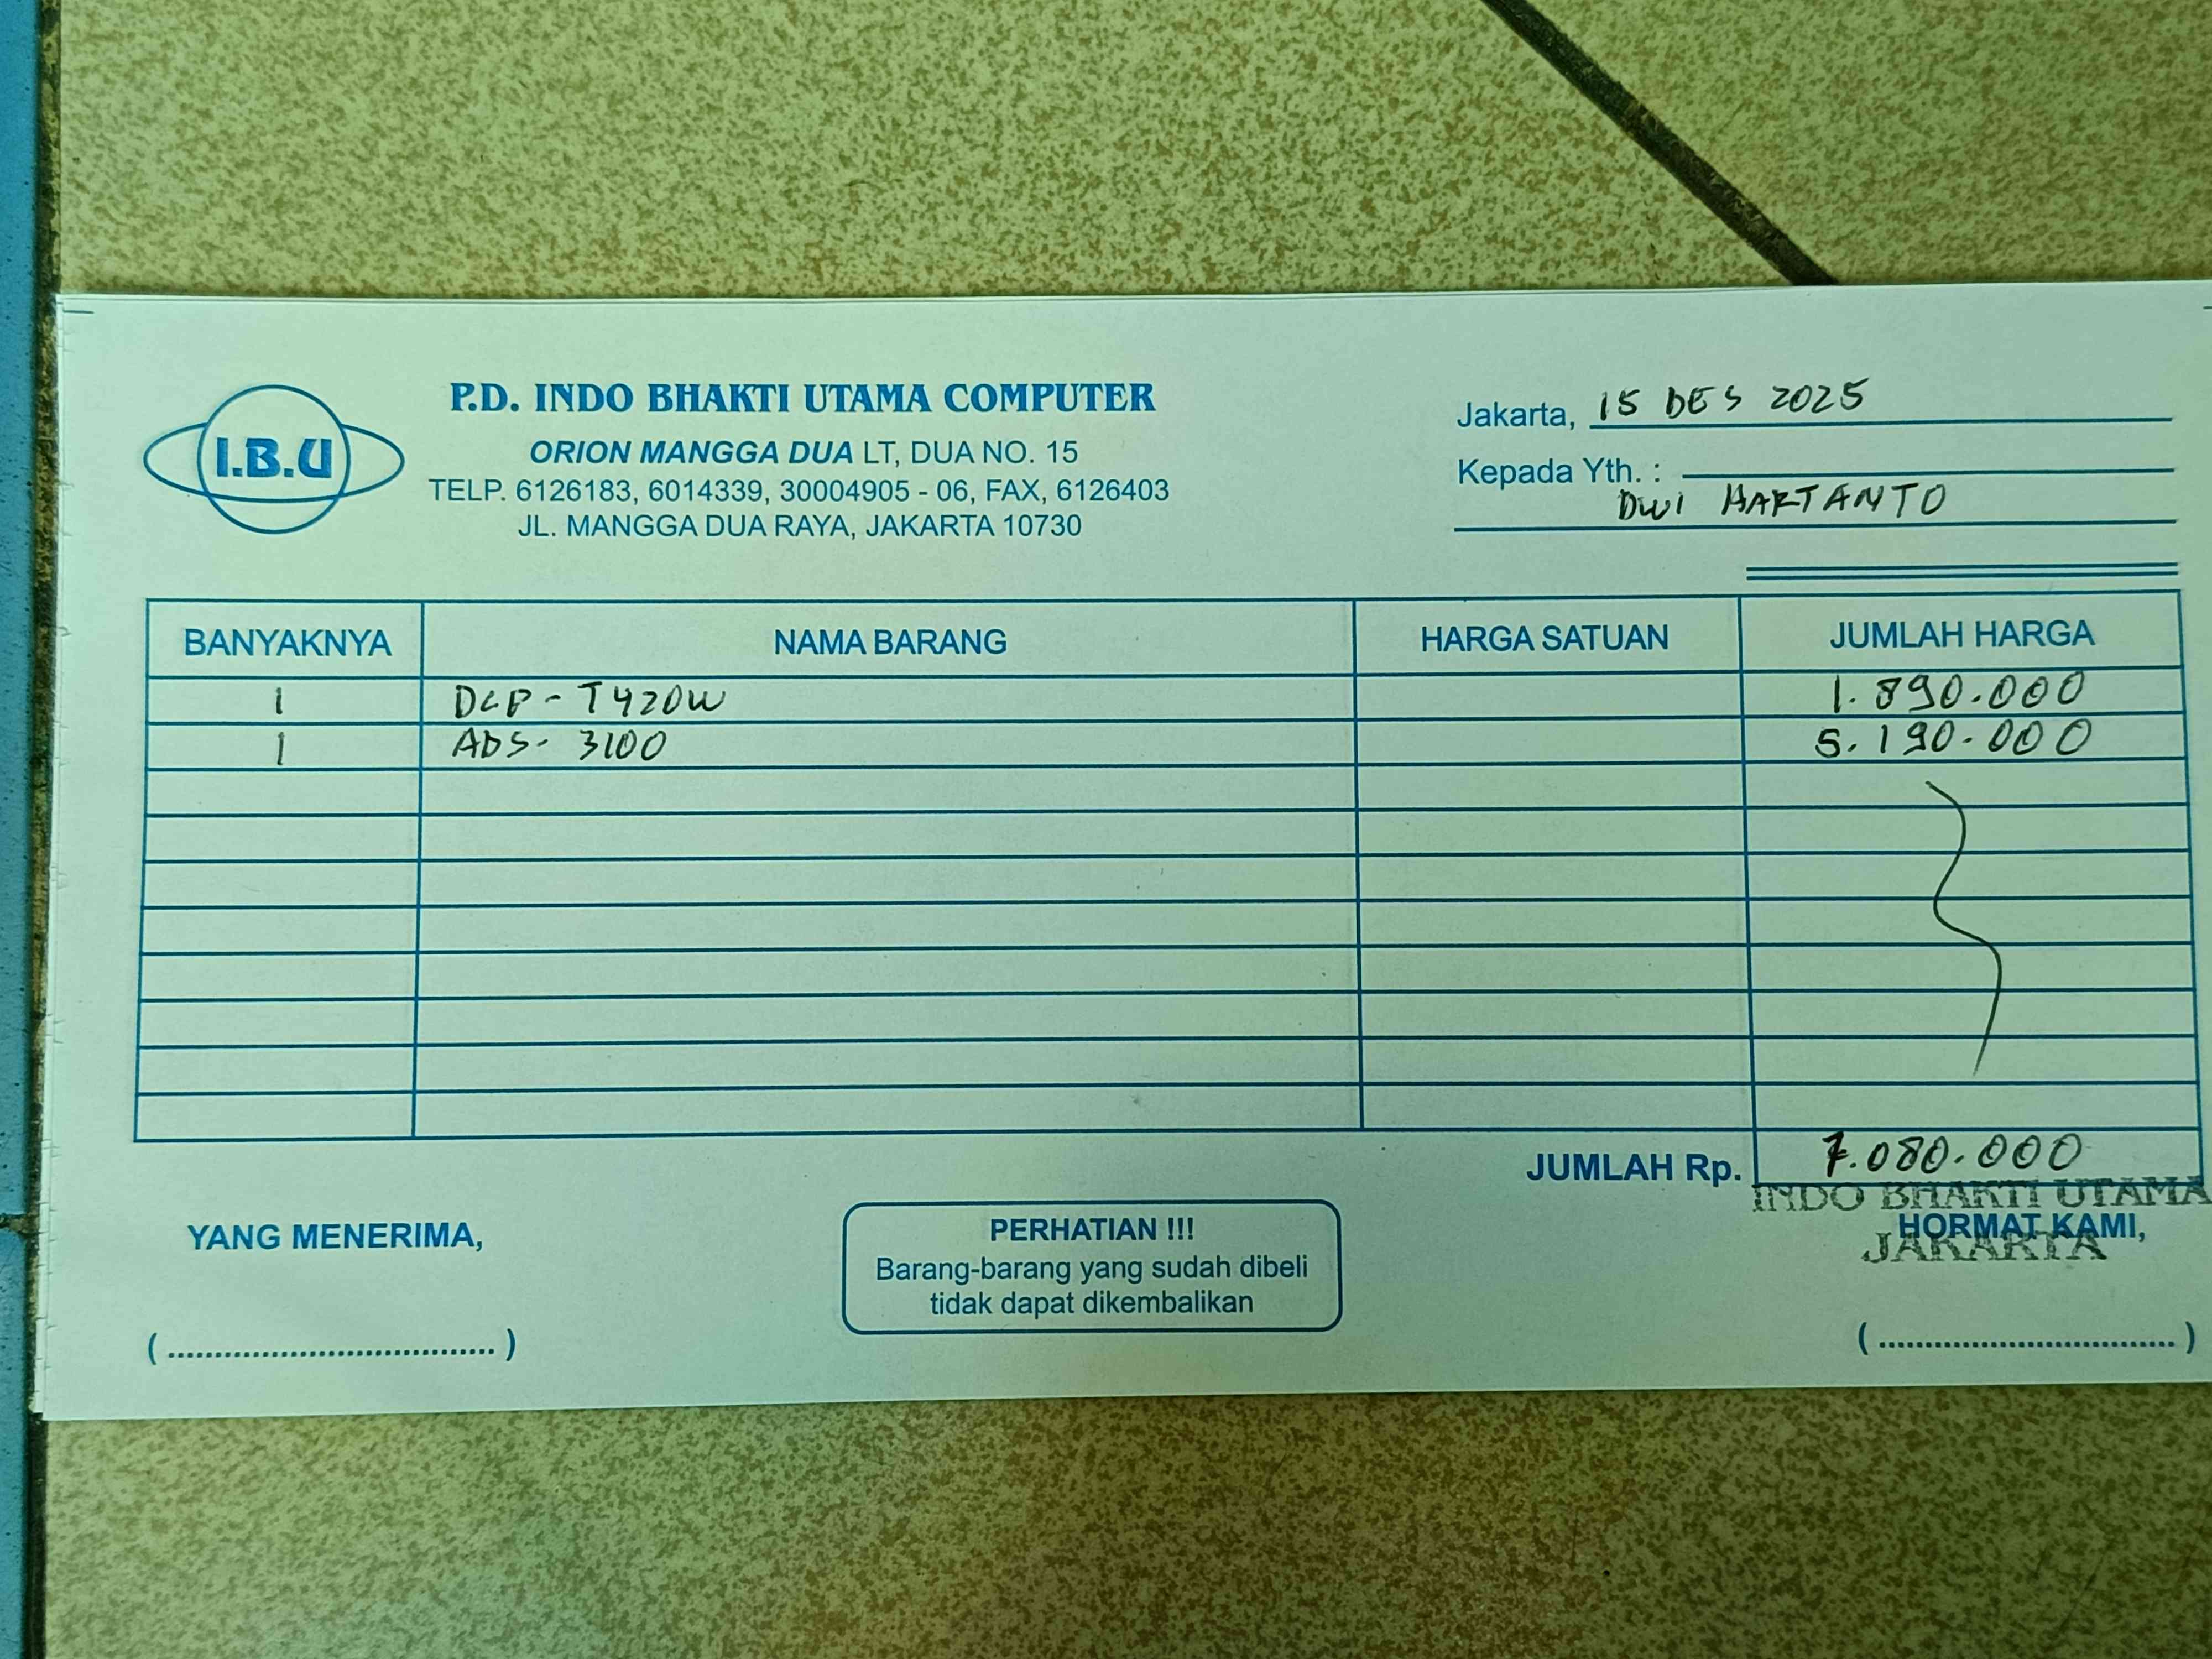 I.B.U
P.D. INDO BHAKTI UTAMA COMPUTER
ORION MANGGA DUA LT, DUA NO. 15
TELP. 6126183, 6014339, 30004905 - 06, FAX, 6126403
JL. MANGGA DUA RAYA, JAKARTA 10730
Jakarta, 15 DES 2025
Kepada Yth. :
DWI HARTANTO
BANYAKNYA NAMA BARANG HARGA SATUAN JUMLAH HARGA
1 DCP - T420W 1.890.000
1 ADS - 3100 5.190.000
JUMLAH Rp. 7.080.000
INDO BHAKTI UTAMA
JAKARTA
YANG MENERIMA,
HORMAT KAMI,
PERHATIAN !!!
Barang-barang yang sudah dibeli
tidak dapat dikembalikan
(...................................)
(................................)